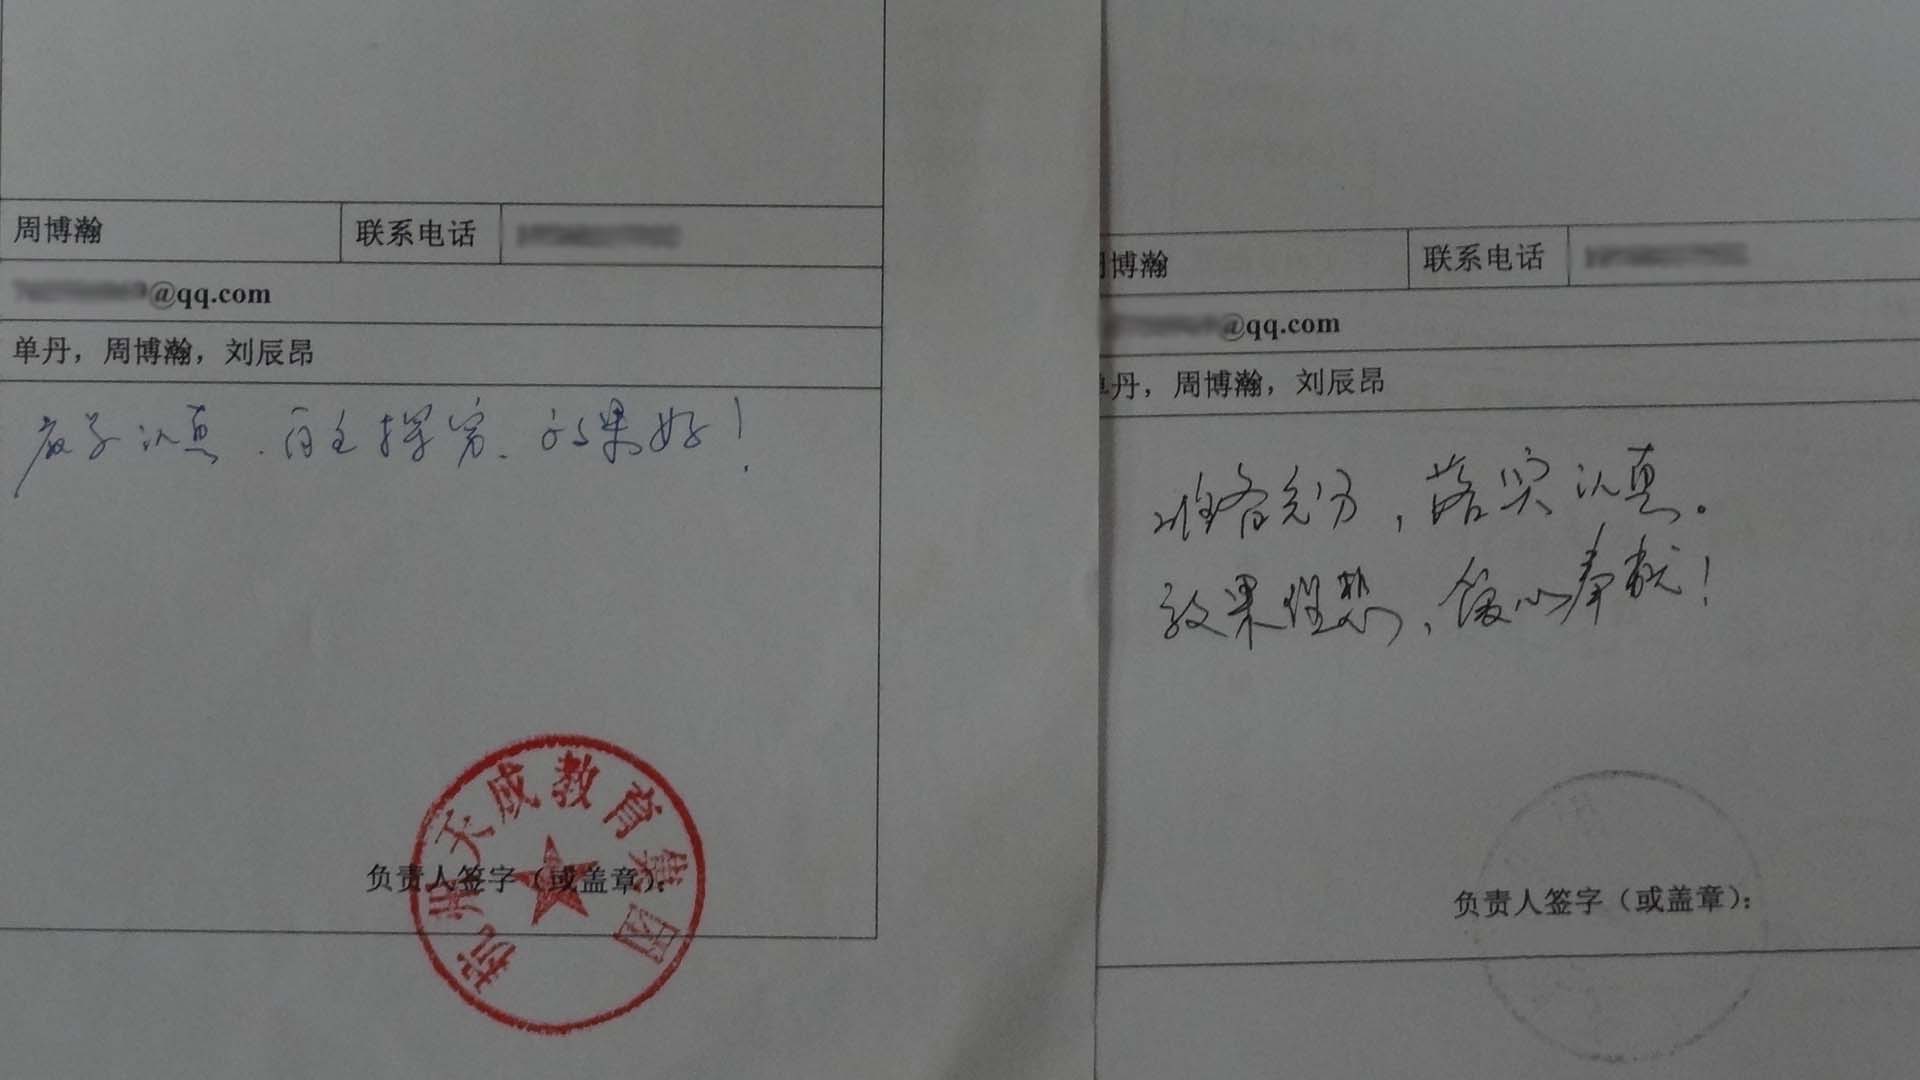 周博瀚 联系电话
@qq.com
单丹，周博瀚，刘辰昂
教学认真、自主探究、效果好！
负责人签字（或盖章）：
杭州天成教育集团
周博瀚 联系电话
@qq.com
单丹，周博瀚，刘辰昂
准备充分，落实认真。
效果理想，倾心奉献！
负责人签字（或盖章）：